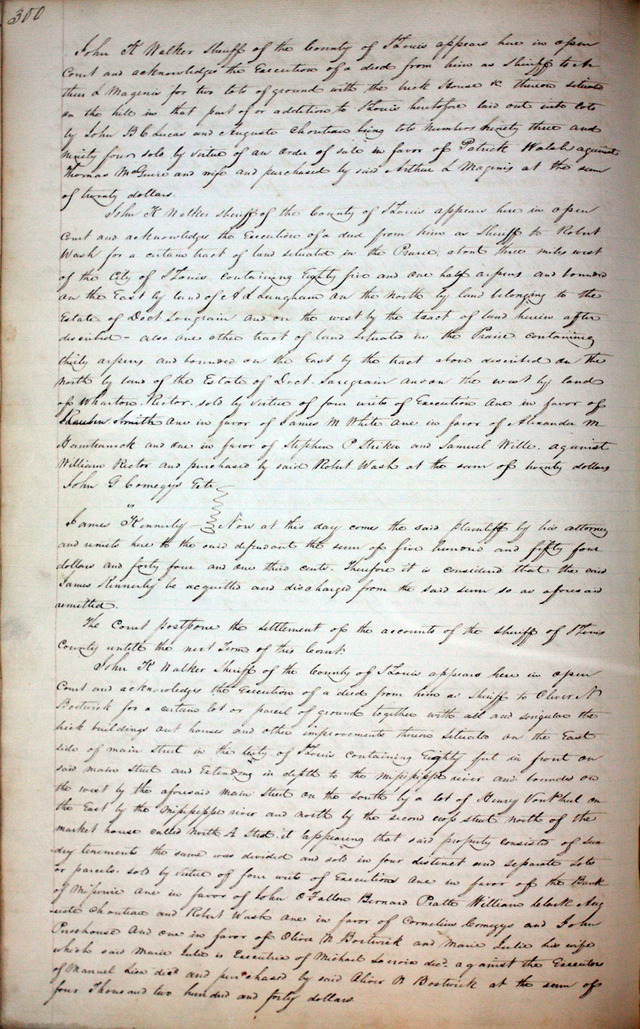 300
John K Walker Sheriff of the County of St Louis appears here in open
Court and acknowledges the Execution of a deed from him as Sheriff to Ar
thur L Magenis for two lots of ground with the brick House &c thereon situate
on the hill in that part of or addition to St Louis heretofore laid out into lots
by John B C Lucas and Auguste Chouteau being lots numbers ninety three and
ninety four sold by virtue of an order of sale in favor of Patrick Walsh against
Thomas McGuire and wife and purchased by said Arthur L Magenis at the sum
of twenty dollars.
John K Walker Sheriff of the County of St Louis appears here in open
Court and acknowledges the Execution of a deed from him as Sheriff to Robert
Wash for a certain tract of land situated in the Prairie about three miles west
of the City of St Louis containing Eighty five and one half arpens and bounded
on the East by land of A L Langham on the North by land belonging to the
Estate of Doct Saugrain and on the west by the tract of land herein after
described – also one other tract of land situated in the Prairie containing
thirty arpens and bounded on the East by the tract above described on the
North by land of the Estate of Doct. Saugrain and on the west by land
of Wharton Rector. sold by virtue of four writs of Execution one in favor of
Reuben Smith one in favor of James M White one in favor of Alexander M
and one in favor of Stephen P and Samuel Wille. against
William Rector and purchased by said Robert Wash at the sum of twenty dollars
John G Comegys
vs
James Kennerly – Now at this day come the said Plaintiff by his attorney
and remits here to the said defendant the sum of five hundred and fifty four
dollars and forty four and one third cents. Therefore it is considered that the said
James Kennerly be acquitted and discharged from the said sum so as aforesaid
remitted.
The Court postpone the settlement of the accounts of the Sheriff of St Louis
County untill the next Term of this Court
John K Walker Sheriff of the County of St Louis appears here in open
Court and acknowledges the Execution of a deed from him as Sheriff to Oliver N
Bostwick for a certain lot or parcel of ground together with all and singular the
brick buildings out houses and other improvements thereon situate on the East
side of main street in the City of St Louis containing Eighty feet in front on
said main Street and Extending in depth to the Mississippi river and bounded on
the west by the aforesaid main Street on the south by a lot of Henry on
the East by the Mississippi river and north by the second cross street north of the
market house called North A Street. it appearing that said property consisted of sun
dry tenements the same was divided and sold in four distinct and separate lots
or parcels. sold by virtue of four writs of Executions one in favor of the Bank
of Missouri one in favor of John O'Fallon Bernard Pratte William Clark Aug
uste Chouteau and Robert Wash one in favor of Cornelius Comegys and John
Pershouse And one in favor of Oliver N Bostwick and Marie his wife
which said Marie is Executrix of Michael Lacroix decd. against the Executors
of Manuel Lisa decd and purchased by said Oliver N Bostwick at the sum of
four Thousand two hundred and forty dollars.